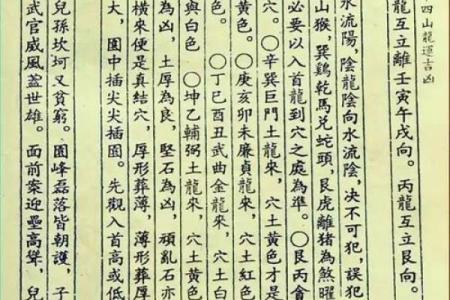 四山龍運吉凶
龍互立離壬寅午戌向。丙龍互立艮向。
水流陽，陰龍陰向水流陰，決不可犯，誤犯
山猴，巽鷄乾馬兌蛇頭，艮虎離豬為煞曜
必要以入首龍到穴之處為準。〇艮丙貪
穴。〇辛巽巨門土龍來，穴土黃色才是
黃色。〇庚亥卯未廉貞龍來，穴土紅色
〇丁巳酉丑武曲金龍來，穴土白
與白色 〇坤乙輔弼土龍來，穴土黃色
為凶，土厚為良，堅石為凶，頑亂石亦
橫來便是真結穴，厚形葬薄，薄形葬厚
大，圍中插尖尖插圓。先觀入首高或低
兒孫坎坷又貧窮。圓峰磊落皆朝護，子
武官威風蓋世雄。面前案迎壘高聳，兒